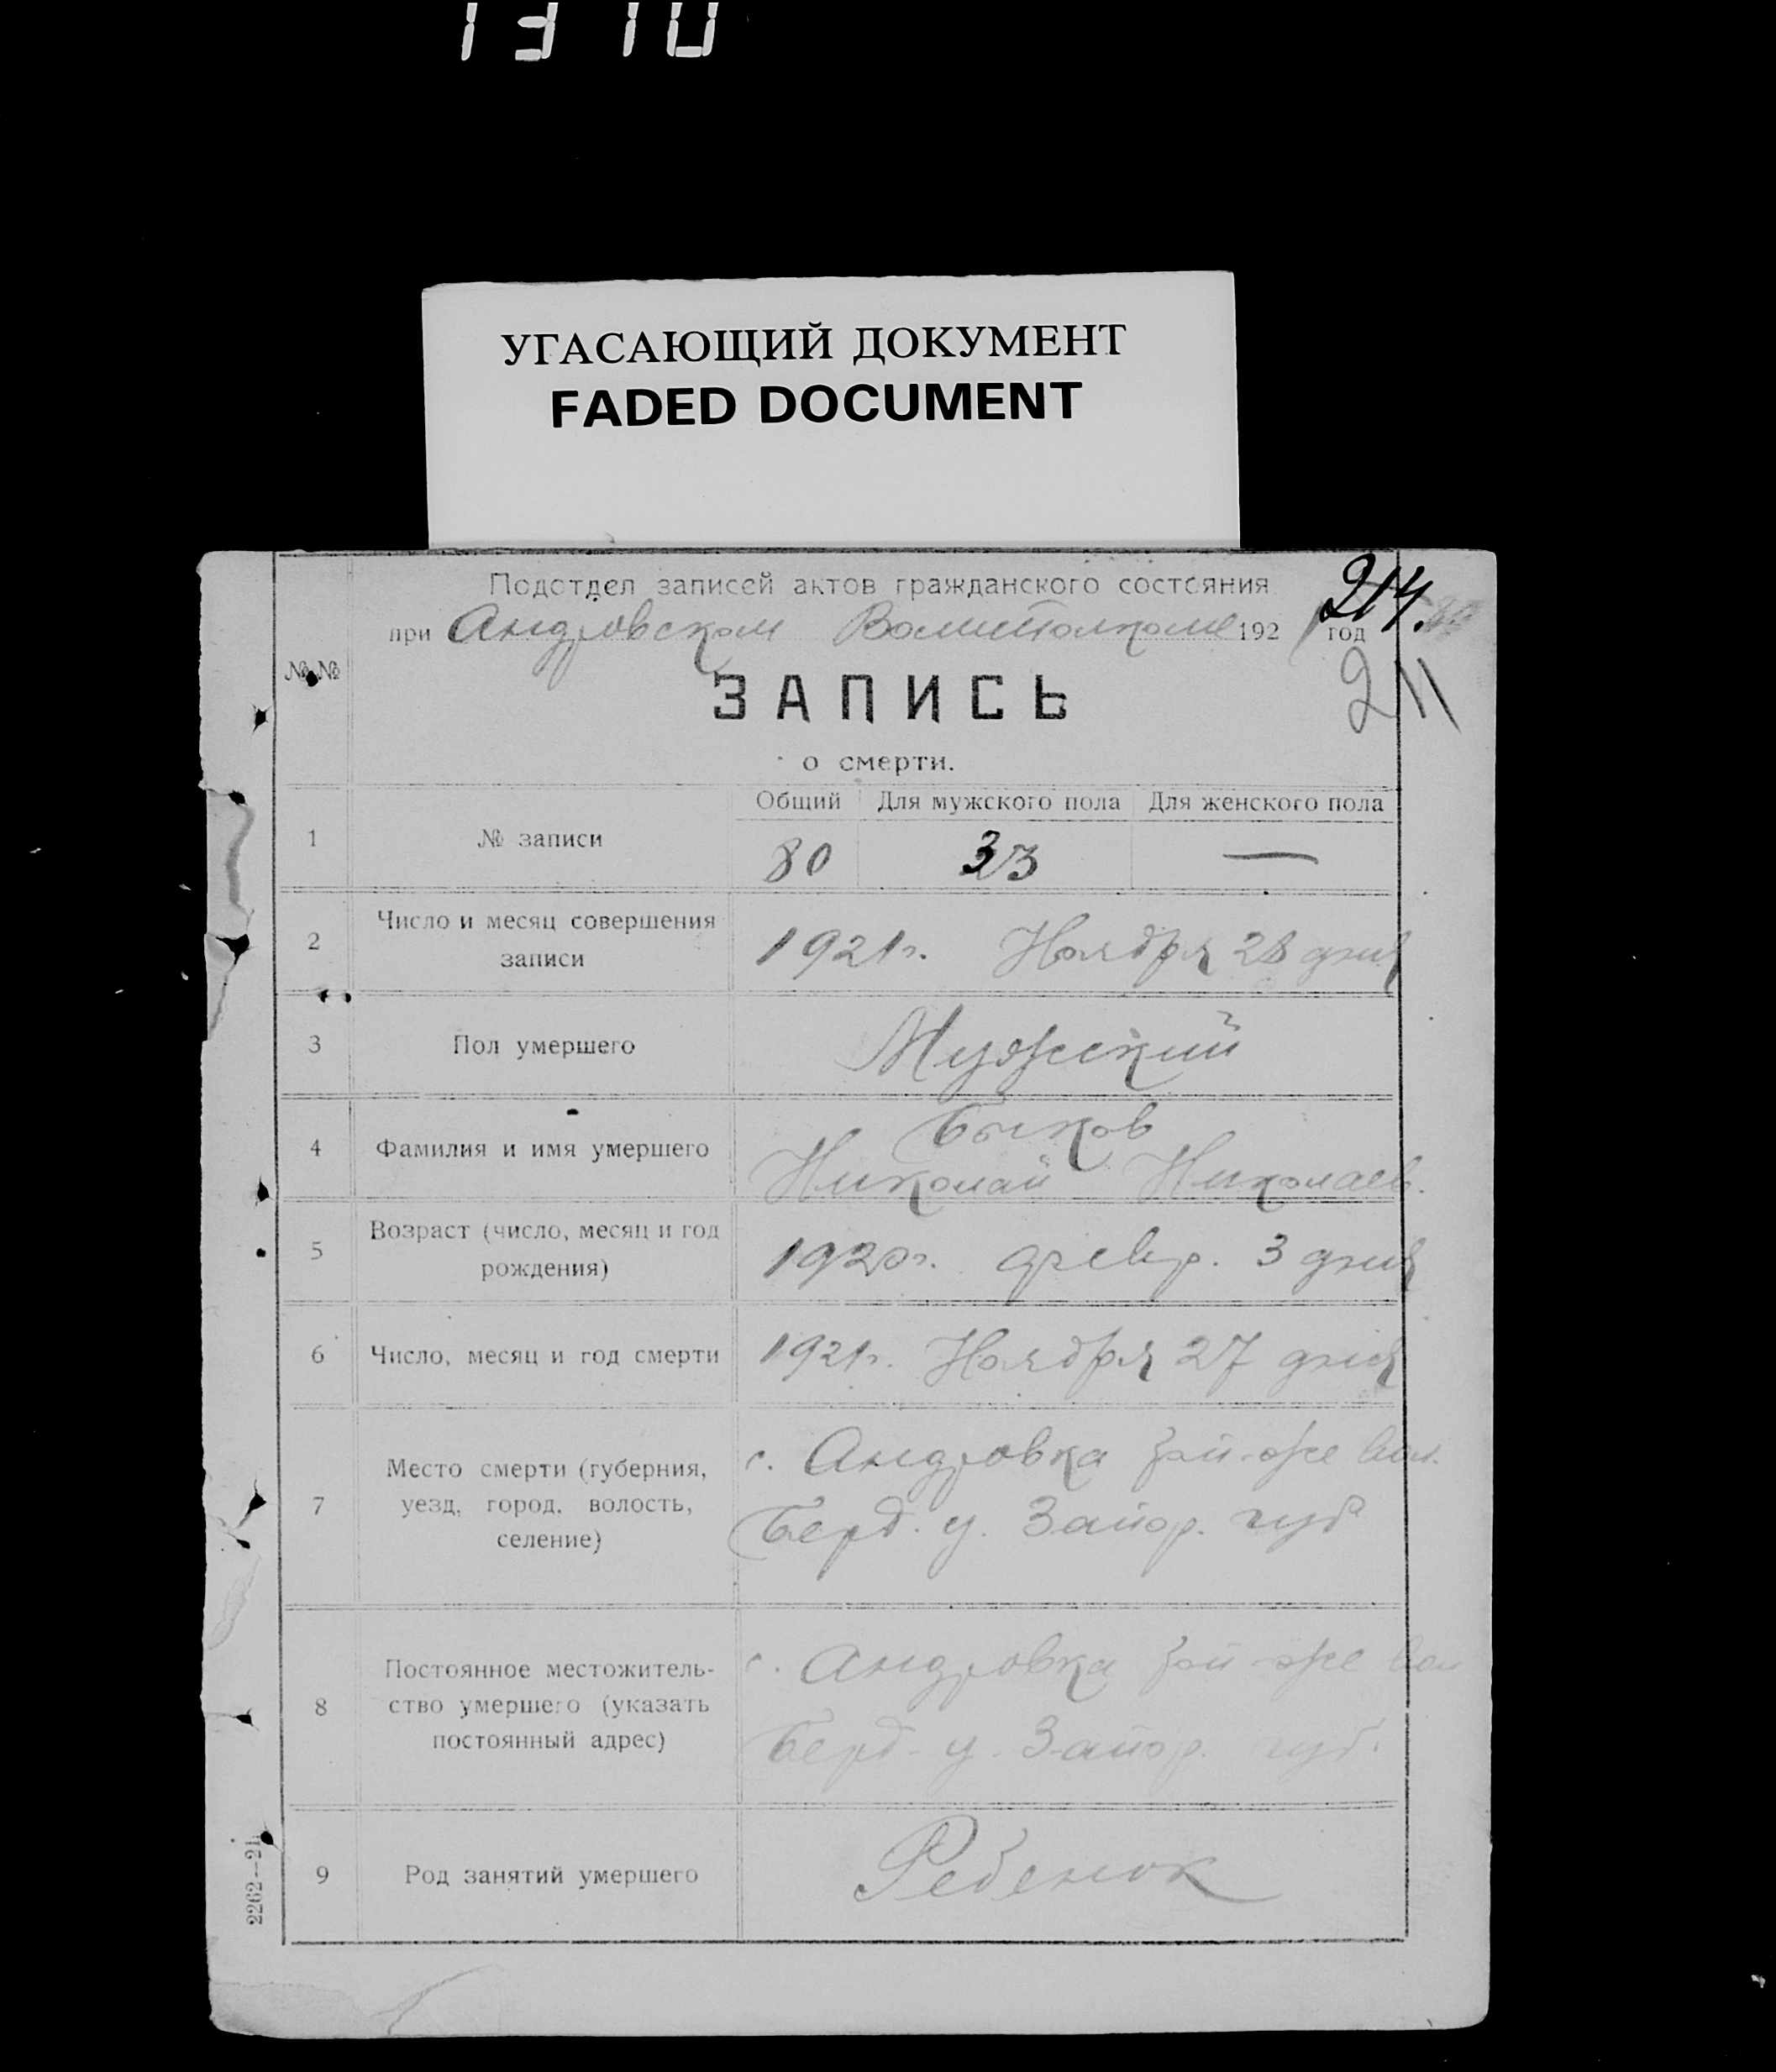 1310
УГАСАЮЩИЙ ДОКУМЕНТ
FADED DOCUMENT
214.
Подотдел записей актов гражданского состояния
при Андровском Волисполкоме 1921 год
211
№№
ЗАПИСЬ
о смерти.
Общий Для мужского пола Для женского пола
1 № записи 80 33 —
2 Число и месяц совершения
записи
1921г. Ноября 28 дня
3 Пол умершего Мужеский
4 Фамилия и имя умершего
Быков
Николай Николаев.
5 Возраст (число, месяц и год
рождения)
1920г. февр. 3 дня
6 Число, месяц и год смерти 1921г. Ноября 27 дня
7 Место смерти (губерния,
уезд, город, волость,
селение)
с. Андровка той-же вол.
Берд. у. Запор. губ
8 Постоянное местожитель-
ство умершего (указать
постоянный адрес)
с. Андровка той-же вол
Берд. у. Запор. губ.
9 Род занятий умершего Ребенок
2262—21